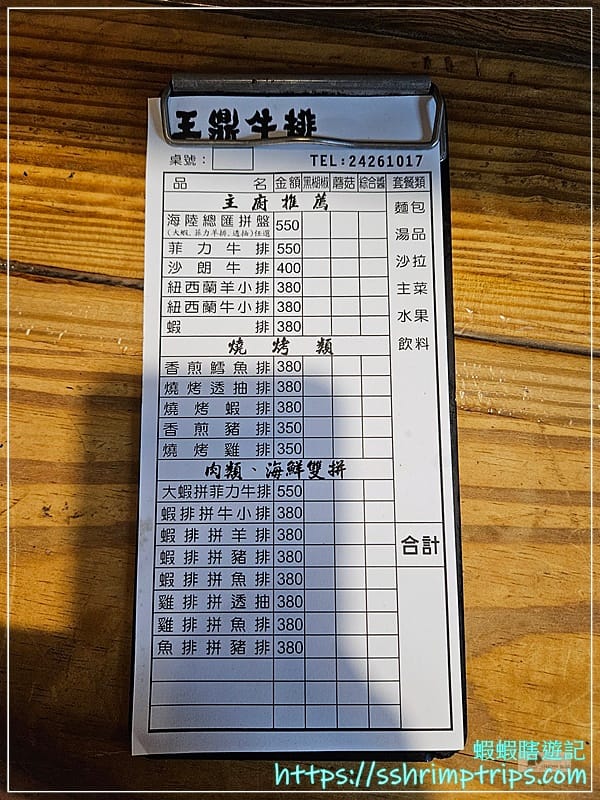 王鼎牛排
桌號：
TEL:24261017
品名 金額 黑楜椒 蘑菇 綜合醬 套餐類
主廚推薦
海陸總匯拼盤 550
(大蝦、菲力羊排、透抽)任選
菲力牛排 550
沙朗牛排 400
紐西蘭羊小排 380
紐西蘭牛小排 380
蝦排 380
燒烤類
香煎鱈魚排 380
燒烤透抽排 380
燒烤蝦排 380
香煎豬排 350
燒烤雞排 350
肉類、海鮮雙拼
大蝦拼菲力牛排 550
蝦排拼牛小排 380
蝦排拼羊排 380
蝦排拼豬排 380
蝦排拼魚排 380
雞排拼透抽 380
雞排拼魚排 380
魚排拼豬排 380
麵包
湯品
沙拉
主菜
水果
飲料
合計
蝦蝦瞎遊記
https://sshrimptrips.com/